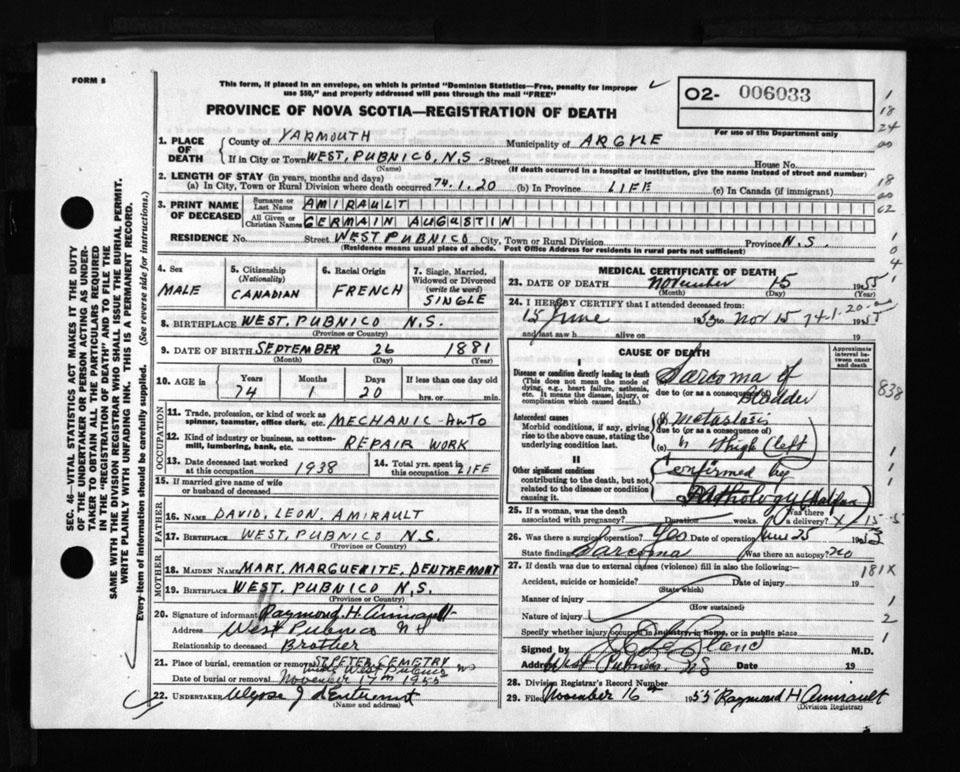 FORM 8
This form, if placed in an envelope, on which is printed "Dominion Statistics—Free, penalty for improper
use $50," and properly addressed will pass through the mail "FREE"
PROVINCE OF NOVA SCOTIA—REGISTRATION OF DEATH
02- 006033
For use of the Department only
SEC. 46—VITAL STATISTICS ACT MAKES IT THE DUTY
OF THE UNDERTAKER OR PERSON ACTING AS UNDER-
TAKER TO OBTAIN ALL THE PARTICULARS REQUIRED
IN THE "REGISTRATION OF DEATH" AND TO FILE THE
SAME WITH THE DIVISION REGISTRAR WHO SHALL ISSUE THE BURIAL PERMIT.
WRITE PLAINLY WITH UNFADING INK. THIS IS A PERMANENT RECORD.
Every item of information should be carefully supplied. (See reverse side for instructions.)
1. PLACE OF DEATH
County of YARMOUTH Municipality of ARGYLE
If in City or Town WEST, PUBNICO, N.S Street House No.
(Name) (If death occurred in a hospital or institution, give the name instead of street and number)
2. LENGTH OF STAY (in years, months and days)
(a) In City, Town or Rural Division where death occurred 74.1.20 (b) In Province LIFE (c) In Canada (if immigrant)
3. PRINT NAME OF DECEASED
Surname or Last Name AMIRAULT
All Given or Christian Names GERMAIN AUGUSTIN
RESIDENCE No. Street WEST PUBNICO City, Town or Rural Division Province N.S.
(Residence means usual place of abode. Post Office Address for residents in rural parts not sufficient)
4. Sex MALE
5. Citizenship (Nationality) CANADIAN
6. Racial Origin FRENCH
7. Single, Married, Widowed or Divorced (write the word) SINGLE
8. BIRTHPLACE WEST, PUBNICO N.S.
(Province or Country)
9. DATE OF BIRTH SEPTEMBER 26 1881
(Month) (Day) (Year)
10. AGE in Years Months Days If less than one day old
74 1 20 hrs. or min.
OCCUPATION
11. Trade, profession, or kind of work as
spinner, teamster, office clerk, etc. MECHANIC-AUTO
12. Kind of industry or business, as cotton-
mill, lumbering, bank, etc. REPAIR WORK
13. Date deceased last worked
at this occupation 1938
14. Total yrs. spent in
this occupation LIFE
15. If married give name of wife
or husband of deceased
FATHER
16. NAME DAVID, LEON, AMIRAULT
17. BIRTHPLACE WEST, PUBNICO N.S.
(Province or Country)
MOTHER
18. MAIDEN NAME MARY, MARGUERITE, DENTREMONT
19. BIRTHPLACE WEST, PUBNICO N.S.
(Province or Country)
20. Signature of informant Raymond H. Amirault
Address West Pubnico N S
Relationship to deceased Brother
21. Place of burial, cremation or removal ST, PETER CEMETRY
West Pubnico NS
Date of burial or removal November 17th 1955
22. UNDERTAKER Ulysse J d'Entremont
(Name and address)
MEDICAL CERTIFICATE OF DEATH
23. DATE OF DEATH November 15 1955
(Month) (Day) (Year)
24. I HEREBY CERTIFY that I attended deceased from:
15 June 1953 to Nov 15 1955
74-1-20
and last saw h alive on 19
CAUSE OF DEATH
Approximate interval between onset and death
I
Disease or condition directly leading to death
(This does not mean the mode of
dying, e.g., heart failure, asthenia,
etc. It means the disease, injury, or
complication which caused death.)
Sarcoma of
due to (or as a consequence of) Bladder
Antecedent causes
Morbid conditions, if any, giving
rise to the above cause, stating the
underlying condition last.
Metastasis
due to (or as a consequence of)
(c) Thigh (left
II
Other significant conditions
contributing to the death, but not
related to the disease or condition
causing it.
Confirmed by
Pathology (Halifax
25. If a woman, was the death
associated with pregnancy? Duration weeks. Was there
a delivery? X 15-5
26. Was there a surgical operation? Yes Date of operation June 25 1953
State finding Sarcoma Was there an autopsy? no
27. If death was due to external causes (violence) fill in also the following:
Accident, suicide or homicide? Date of injury 19
(State which)
Manner of injury
(How sustained)
Nature of injury
Specify whether injury occurred in industry, in home, or in public place
Signed by M.D.
Address West Pubnico, NS Date 19
28. Division Registrar's Record Number
29. Filed November 16th 1955 Raymond H Amirault
(Division Registrar)
1
18
24
00
18
00
02
1
0
4
1
838
1
1
1
181X
1
2
1